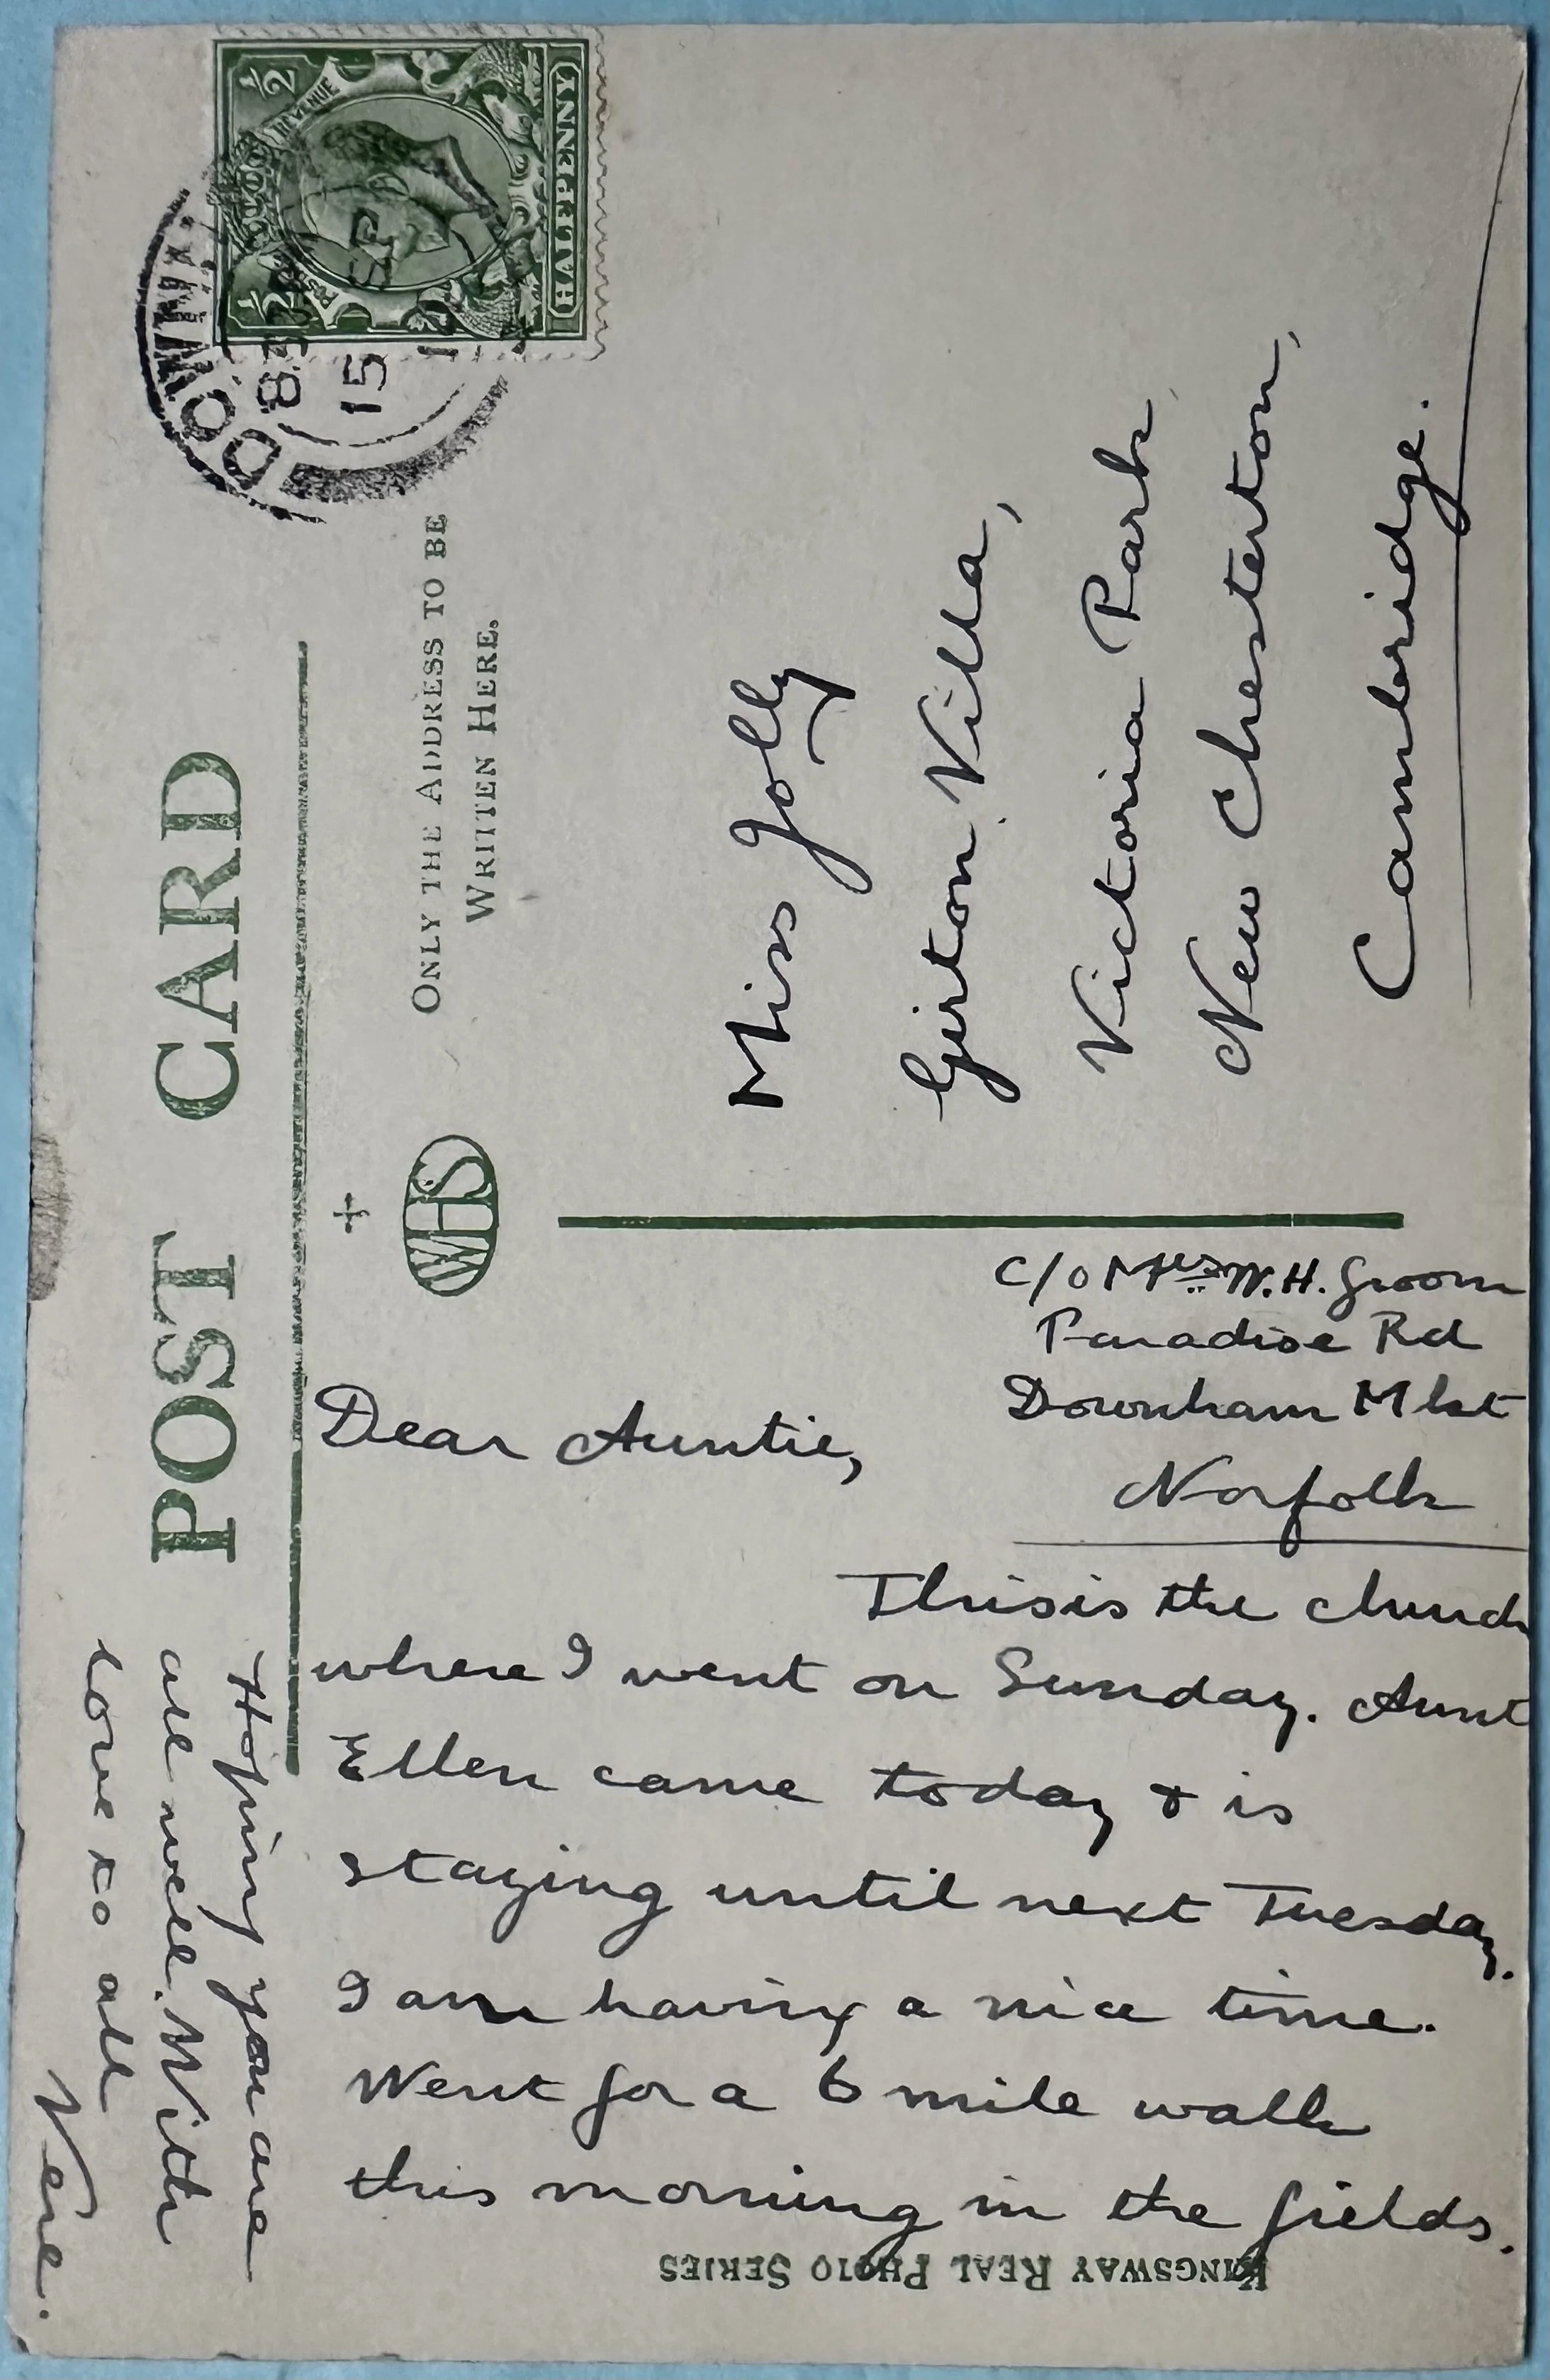 POST CARD
ONLY THE ADDRESS TO BE
WRITTEN HERE.
WHS
½ ½
POSTAGE REVENUE
HALFPENNY
DOWNHAM
830
15 SP
1
Miss Jolly
Girton Villa,
Victoria Park,
New Chesterton,
Cambridge.
C/o Mrs W.H. Groom
Paradise Rd
Downham Mkt
Norfolk
Dear Auntie,
This is the church
where I went on Sunday. Aunt
Ellen came today & is
staying until next Tuesday.
I am having a nice time.
Went for a 6 mile walk
this morning in the fields.
Hoping you are
all well. With
love to all
Vene.
KINGSWAY REAL PHOTO SERIES